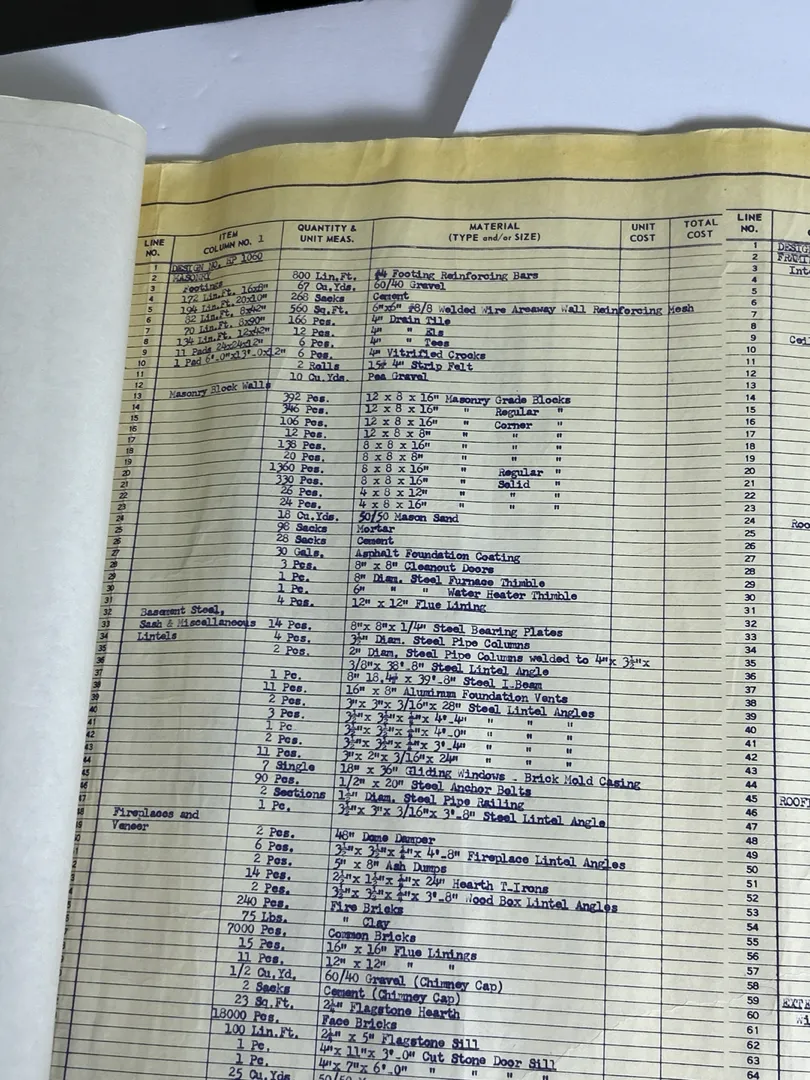 LINE NO. ITEM COLUMN NO. 1 QUANTITY & UNIT MEAS. MATERIAL (TYPE and/or SIZE) UNIT COST TOTAL COST LINE NO.
1 DESIGN NO. EP 1060
2 MASONRY 800 Lin.Ft. #4 Footing Reinforcing Bars
3 Footings 67 Cu.Yds. 60/40 Gravel
4 172 Lin.Ft. 16x8" 268 Sacks Cement
5 194 Lin.Ft. 20x10" 560 Sq.Ft. 6"x6" #8/8 Welded Wire Areaway Wall Reinforcing Mesh
6 82 Lin.Ft. 8x42" 166 Pcs. 4" Drain Tile
7 70 Lin.Ft. 8x90" 12 Pcs. 4" " Els
8 134 Lin.Ft. 12x42" 6 Pcs. 4" " Tees
9 11 Pads 24x24x12" 6 Pcs. 4" Vitrified Crocks
10 1 Pad 6'-0"x13'-0x12" 2 Rolls 15# 4" Strip Felt
11 10 Cu.Yds. Pea Gravel
12
13 Masonry Block Walls 392 Pcs. 12 x 8 x 16" Masonry Grade Blocks
14 346 Pcs. 12 x 8 x 16" " Regular "
15 106 Pcs. 12 x 8 x 16" " Corner "
16 12 Pcs. 12 x 8 x 8" " " "
17 138 Pcs. 8 x 8 x 16" " " "
18 20 Pcs. 8 x 8 x 8" " " "
19 1360 Pcs. 8 x 8 x 16" " Regular "
20 330 Pcs. 8 x 8 x 16" " Solid "
21 26 Pcs. 4 x 8 x 12" " " "
22 24 Pcs. 4 x 8 x 16" " " "
23 18 Cu.Yds. 50/50 Mason Sand
24 98 Sacks Mortar
25 28 Sacks Cement
26 30 Gals. Asphalt Foundation Coating
27 3 Pcs. 8" x 8" Cleanout Doors
28 1 Pc. 8" Diam. Steel Furnace Thimble
29 1 Pc. 6" " " Water Heater Thimble
30 4 Pcs. 12" x 12" Flue Lining
31
32 Basement Steel,
33 Sash & Miscellaneous 14 Pcs. 8"x 8"x 1/4" Steel Bearing Plates
34 Lintels 4 Pcs. 3½" Diam. Steel Pipe Columns
35 2 Pcs. 2" Diam. Steel Pipe Columns welded to 4"x 3½"x
3/8"x 38'-8" Steel Lintel Angle
37 1 Pc. 8" 18.4# x 39'-8" Steel I-Beam
11 Pcs. 16" x 8" Aluminum Foundation Vents
2 Pcs. 3"x 3"x 3/16"x 28" Steel Lintel Angles
40 3 Pcs. 3½"x 3½"x ¼"x 4'-4" " " "
41 1 Pc 3½"x 3½"x ¼"x 4'-0" " " "
42 2 Pcs. 3½"x 3½"x ¼"x 3'-4" " " "
43 11 Pcs. 3"x 2"x 3/16"x 24" " " "
44 7 Single 18" x 36" Gliding Windows - Brick Mold Casing
90 Pcs. 1/2" x 20" Steel Anchor Bolts
2 Sections 1½" Diam. Steel Pipe Railing
1 Pc. 3½"x 3"x 3/16"x 3'-8" Steel Lintel Angle
Fireplaces and
Veneer 2 Pcs. 48" Dome Damper
6 Pcs. 3½"x 3½"x ¼"x 4'-8" Fireplace Lintel Angles
2 Pcs. 5" x 8" Ash Dumps
14 Pcs. 2½"x 1½"x ¼"x 24" Hearth T-Irons
2 Pcs. 3½"x 3½"x ¼"x 3'-8" Wood Box Lintel Angles
240 Pcs. Fire Bricks
75 Lbs. " Clay
7000 Pcs. Common Bricks
15 Pcs. 16" x 16" Flue Linings
11 Pcs. 12" x 12" " "
1/2 Cu.Yd. 60/40 Gravel (Chimney Cap)
2 Sacks Cement (Chimney Cap)
23 Sq.Ft. 2¼" Flagstone Hearth
18000 Pcs. Face Bricks
100 Lin.Ft. 2¼" x 5" Flagstone Sill
1 Pc. 4"x 11"x 3'-0" Cut Stone Door Sill
1 Pc. 4"x 7"x 6'-0" " " " "
25 Cu.Yds
1 DESIG
2 FRAMI
3 Int
4
5
6
7
8
9 Ceil
10
11
12
13
14
15
16
17
18
19
20
21
22
23
24 Roo
25
26
27
28
29
30
31
32
33
34
35
36
37
38
39
40
41
42
43
44
45 ROOFI
46
47
48
49
50
51
52
53
54
55
56
57
58
59 EXTE
60 Wi
61
62
63
64